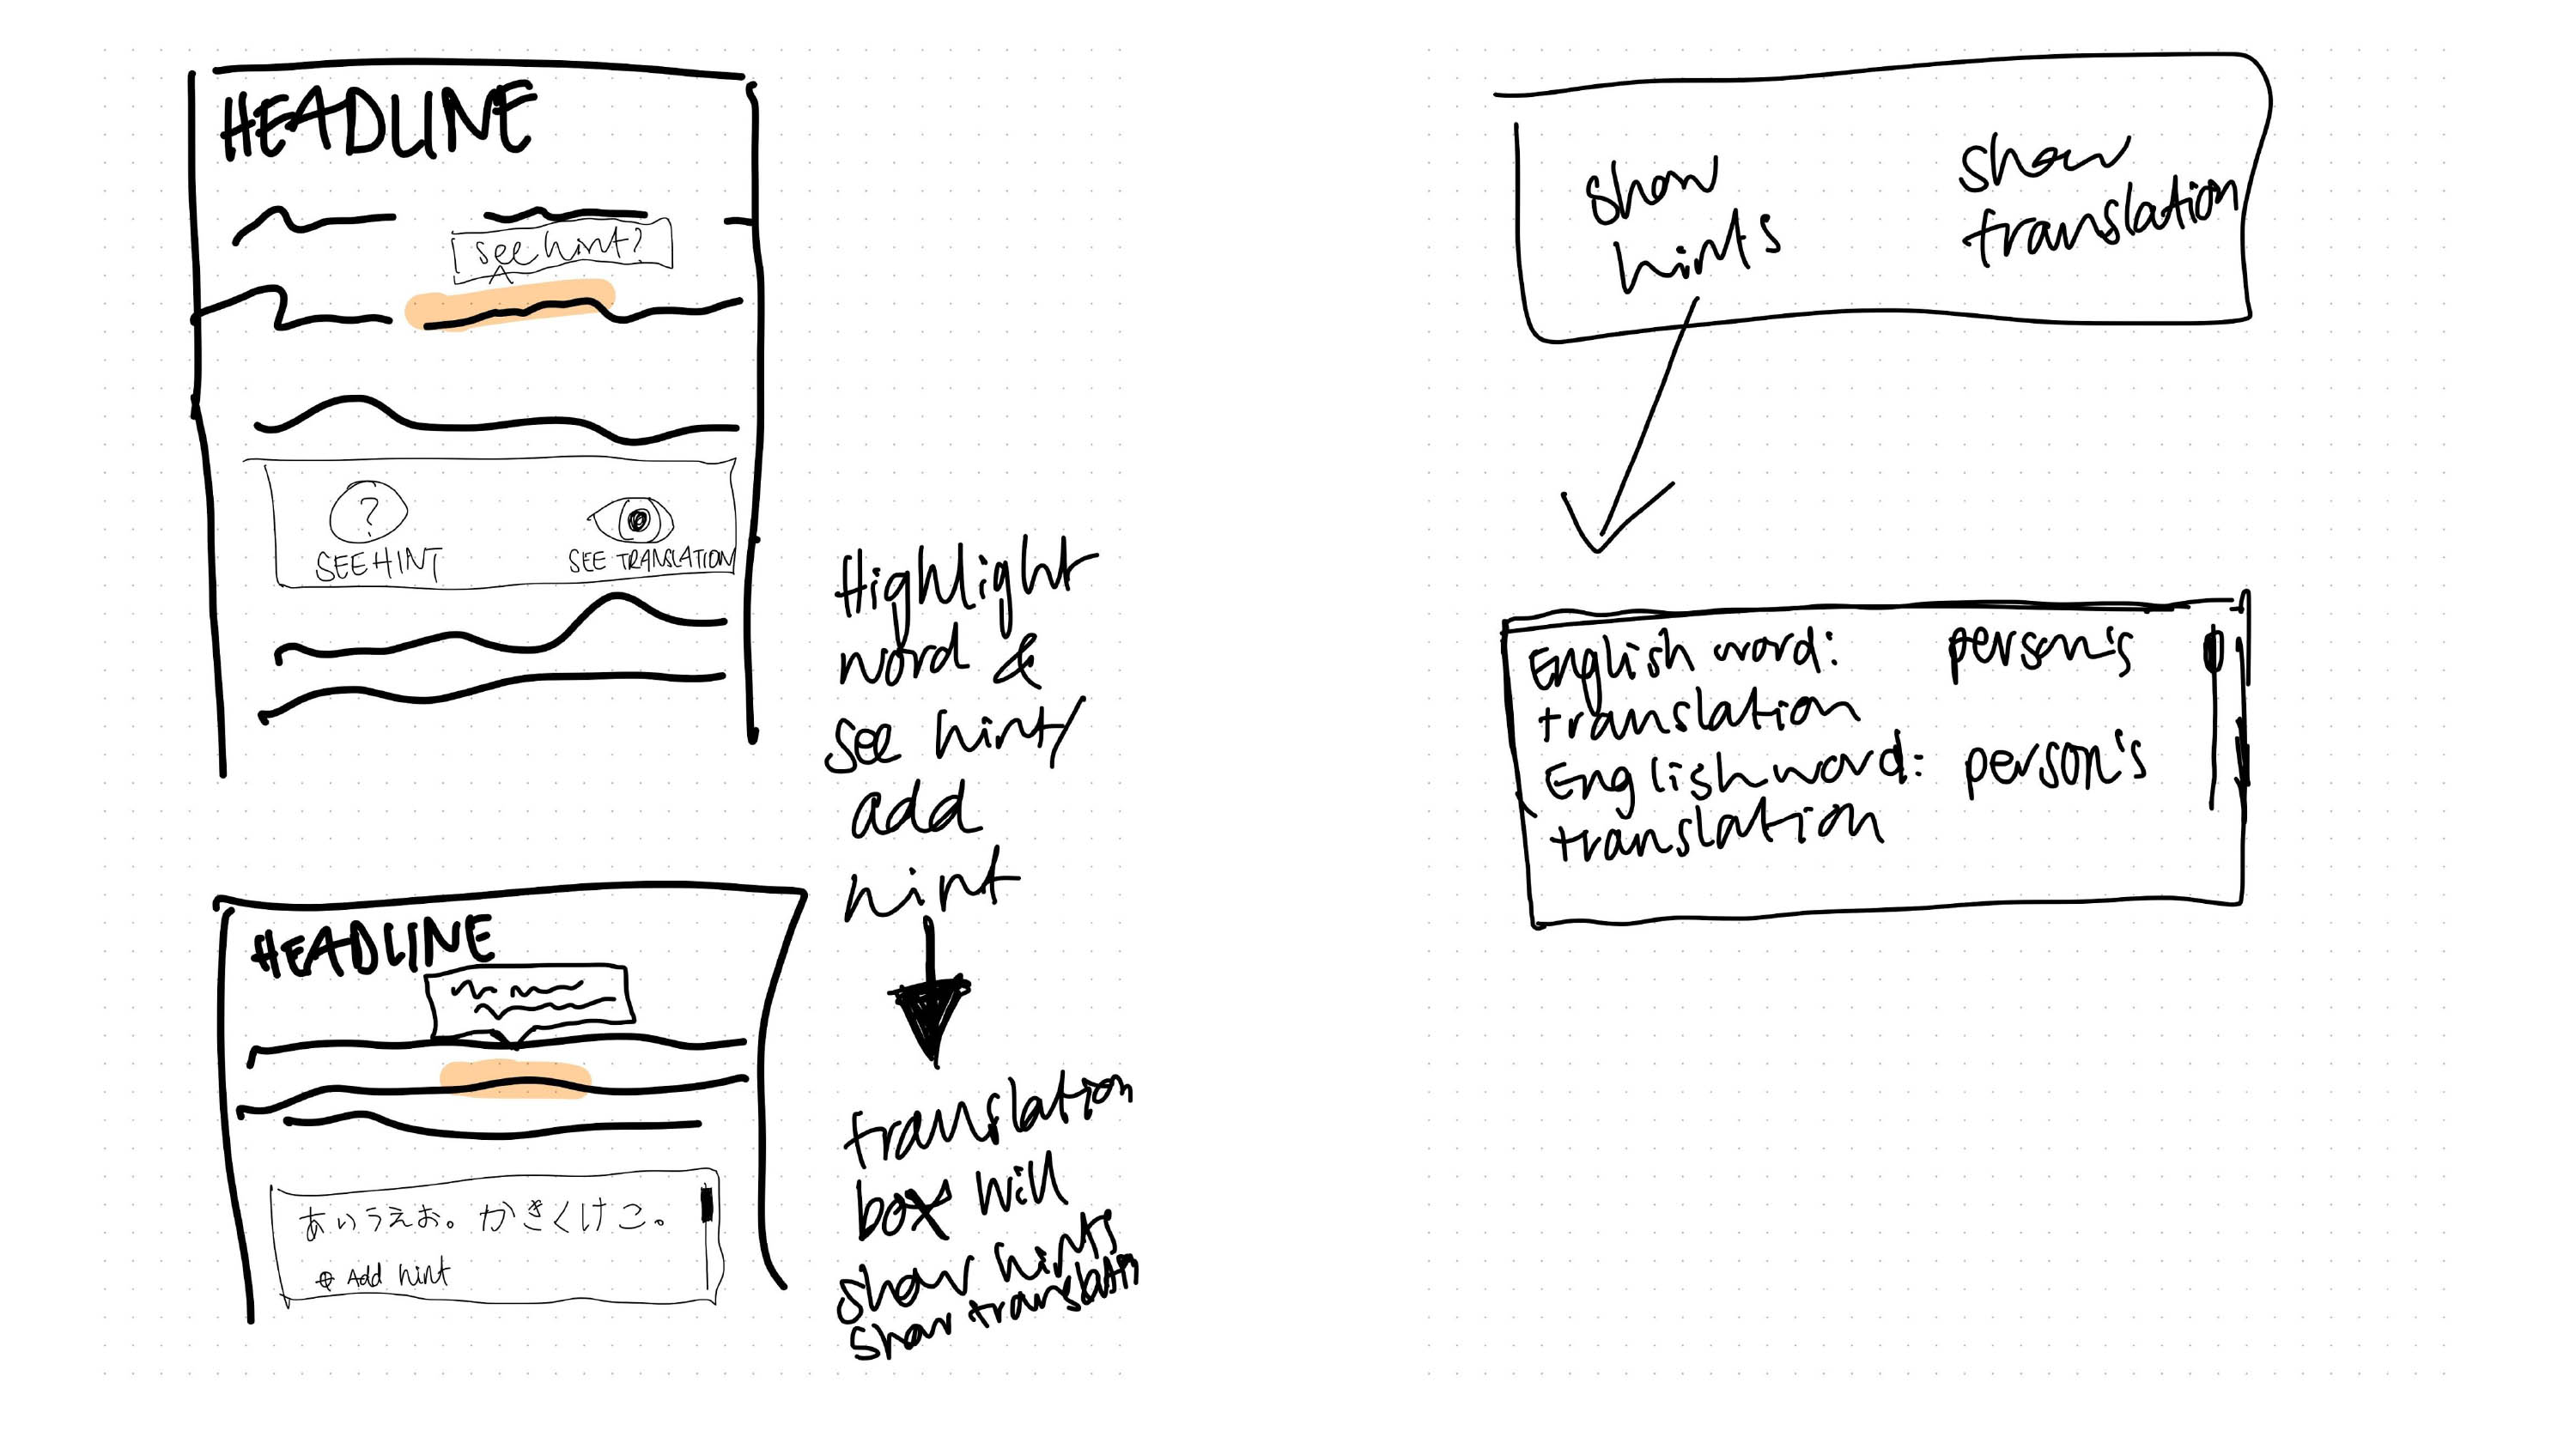 HEADLINE
see hint?
?
SEE HINT
SEE TRANSLATION
HEADLINE
あいうえお。かきくけこ。
⊕ Add hint
Highlight
word &
see hint/
add
hint
translation
box will
show hints
show translation
show
hints
show
translation
English word: person's
translation
English word: person's
translation